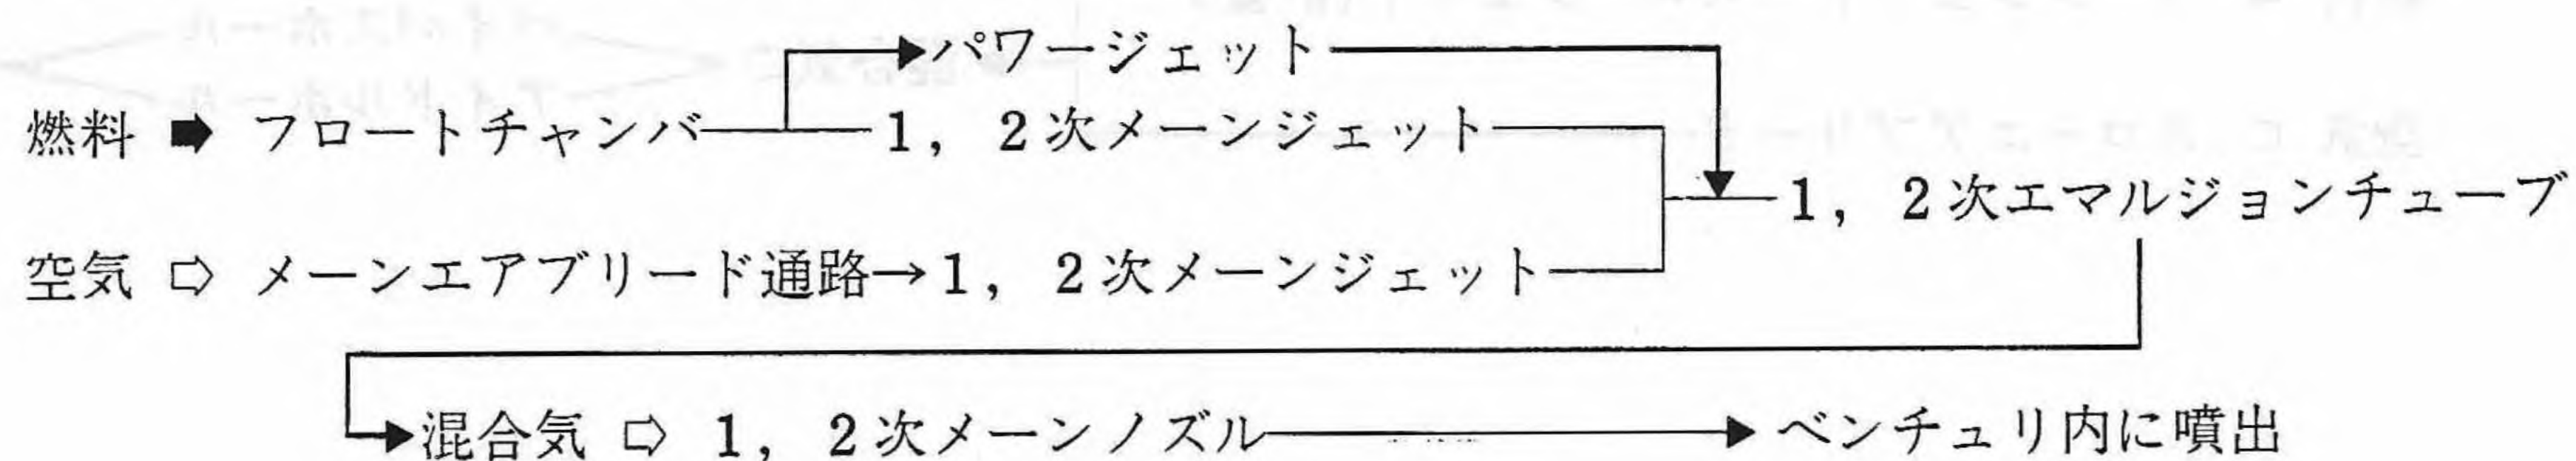 パワージェット
燃料 ➡ フロートチャンバ 1, 2次メーンジェット
1, 2次エマルジョンチューブ
空気 ⇨ メーンエアブリード通路→1, 2次メーンジェット
混合気 ⇨ 1, 2次メーンノズル ベンチュリ内に噴出